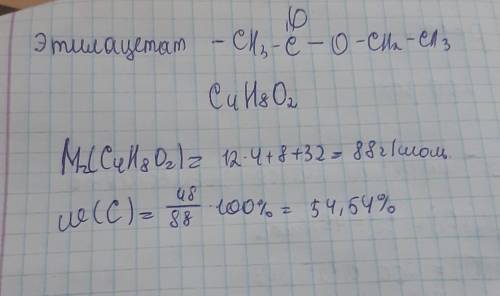 Этилацетат - CH3-C(=O)-O-CH2-CH3
C4H8O2
Mr(C4H8O2) = 12·4+8+32 = 88г/моль
ω(C) = 48/88 · 100% = 54,54%